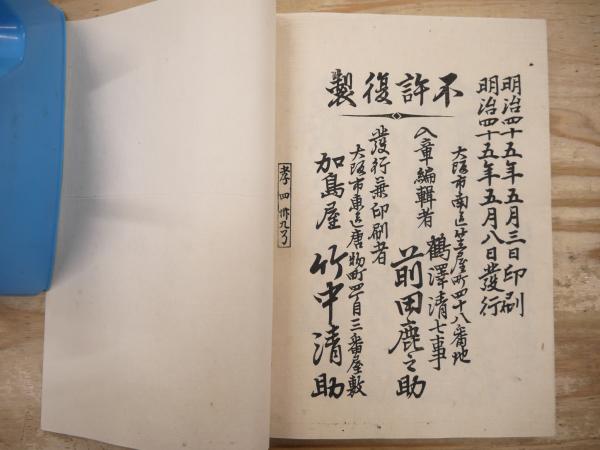 明治四十五年五月三日印刷
明治四十五年五月八日發行
不許復製
大阪市南區笠屋町四十八番地
鶴澤清七事
入章編輯者
前田鹿之助
發行兼印刷者
大阪市東區唐物町四丁目三番屋敷
加島屋 竹中清助
孝四